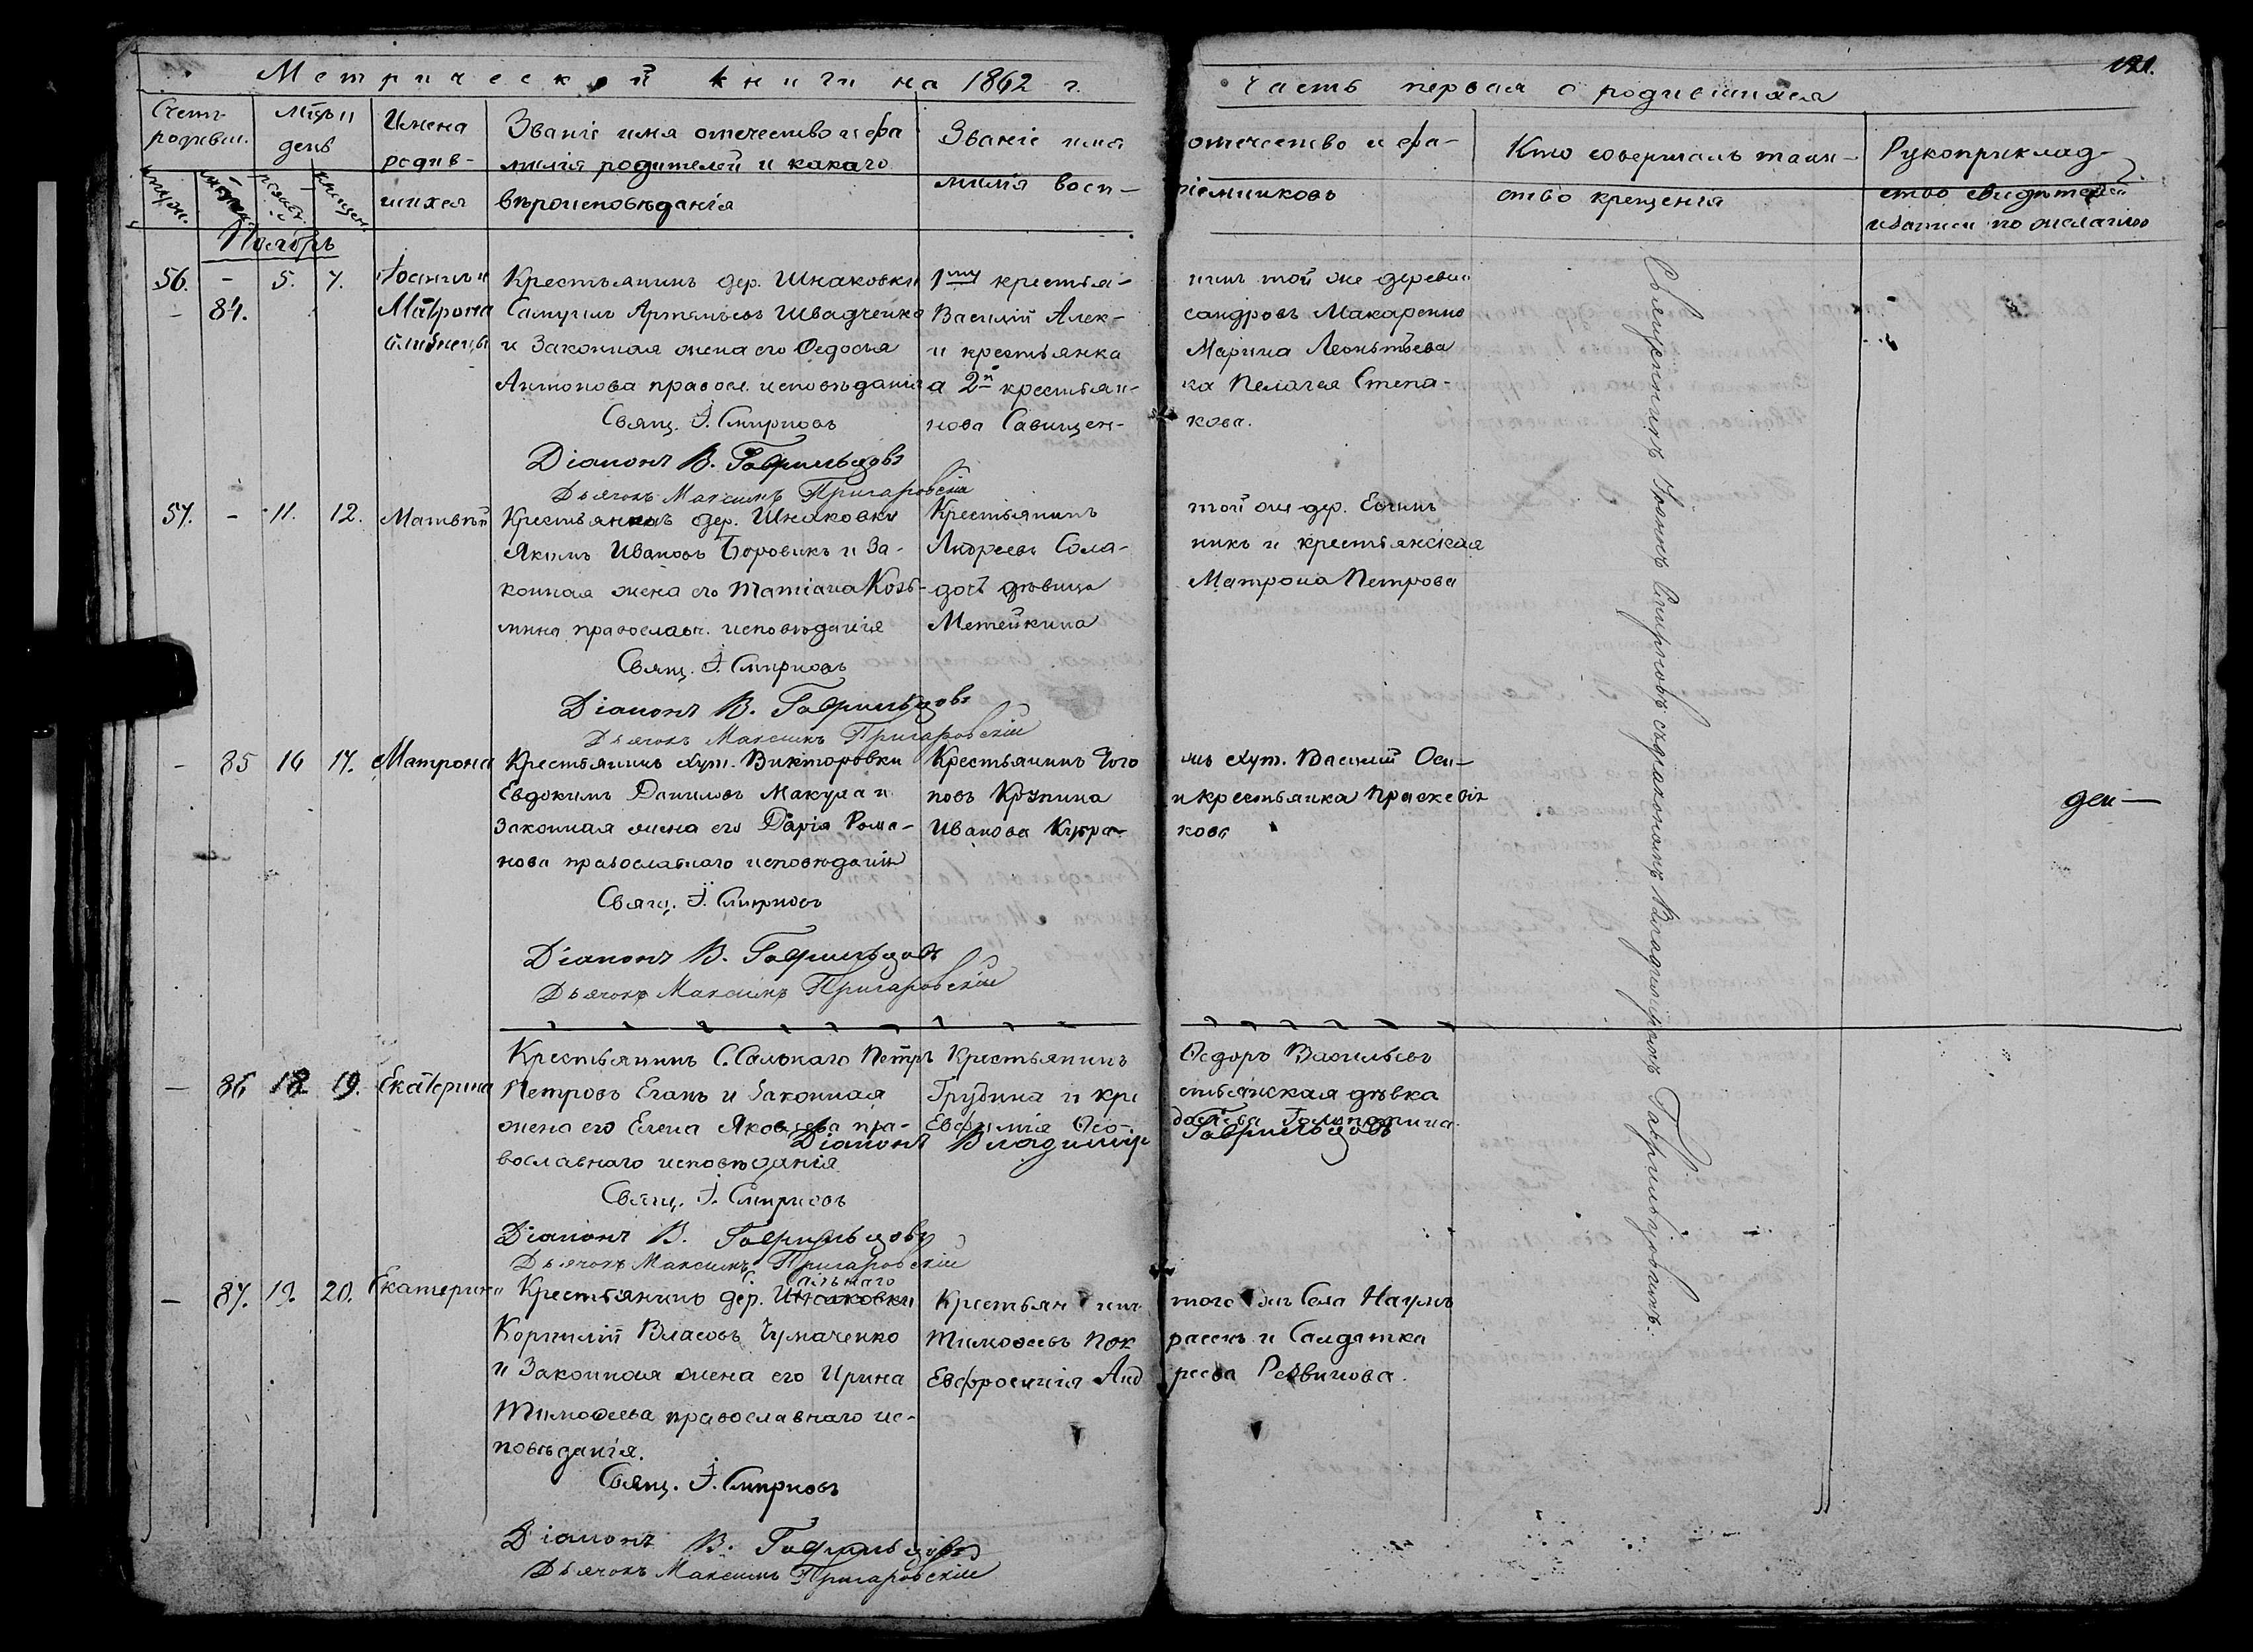 Метрической книги на 1862 г.
Часть первая о родившихся
121.
Счетъ родивш.
Мѣсяцъ и день
Имена родив-
шихся
Званіе имя отечество и фа
милія родителей и какаго
вѣроисповѣданія
Званіе имя отечество и фа-
милія восп-ріемниковъ
Кто совершалъ таин-
ство крещенія
Рукоприклад-
ство свидѣтелей
записи по желанію
Ноябрь
56. - 5. 7. Іоаннъ и
- 84. Матрона
близнецы
Крестьянинъ дер. Шнаковки
Самуилъ Артемьевъ Швадченко
и Законная жена его Ѳедосья
Антонова правосл. исповѣданія
Свящ. І. Смирновъ
Діаконъ В. Гаврильцовъ
Дьячокъ Максимъ Пригаровскій
1му крестья-нинъ той же деревни
Василій Алек-сандровъ Макаренко
и крестьянка Марина Леонтьева
а 2й крестьян-ка Пелагея Степа-
нова Савищен-кова.
57. - 11. 12. Матвѣй
Крестьянинъ дер. Шнаковки
Якимъ Ивановъ Боровикъ и За-
конная жена его Татіана Козь-
мина православн. исповѣданія
Свящ. І. Смирновъ
Діаконъ В. Гаврильцовъ
Дьячокъ Максимъ Пригаровскій
Крестьянинъ той же дер. Евфимъ
Андреевъ Сола-никъ и крестьянская
дочь дѣвица Матрона Петрова
Метейкина
- 85 16 17. Матрона
Крестьянинъ Хут. Викторовки
Евдокимъ Даниловъ Макуха и
Законная жена его Дарія Рома-
нова православнаго исповѣданія
Свящ. І. Смирновъ
Діаконъ В. Гаврильцовъ
Дьячокъ Максимъ Пригаровскій
Крестьянинъ того жъ Хут. Василій Оси-
повъ Крупина и крестьянка Праскевія
Иванова Купра-кова
- 86 18 19. Екатерина
Крестьянинъ С. Сальнаго Петръ
Петровъ Еганъ и Законная
жена его Елена Яковлева пра-
вославнаго исповѣданія
Свящ. І. Смирновъ
Діаконъ В. Гаврильцовъ
Дьячокъ Максимъ Пригаровскій
Крестьянинъ Ѳедоръ Васильевъ
Грубина и кре стьянская дѣвка
Евфимія Ѳео-
Діаконъ Владимір Гаврильцовъ
- 87. 19. 20. Екатерина
С. Сальнаго
Крестьянинъ дер. Шнаковки
Корнилій Власовъ Чумаченко
и Законная жена его Ирина
Тимоѳеева православнаго ис-
повѣданія.
Свящ. І. Смирновъ
Діаконъ В. Гаврильцовъ
Дьячокъ Максимъ Пригаровскій
Крестьянинъ того жъ Села Наумъ
Тимоѳеевъ и Салдатка
Евфросинія Андреева
Священникъ Іоаннъ Смирновъ съ діакономъ Владиміромъ Гаврильцовымъ.